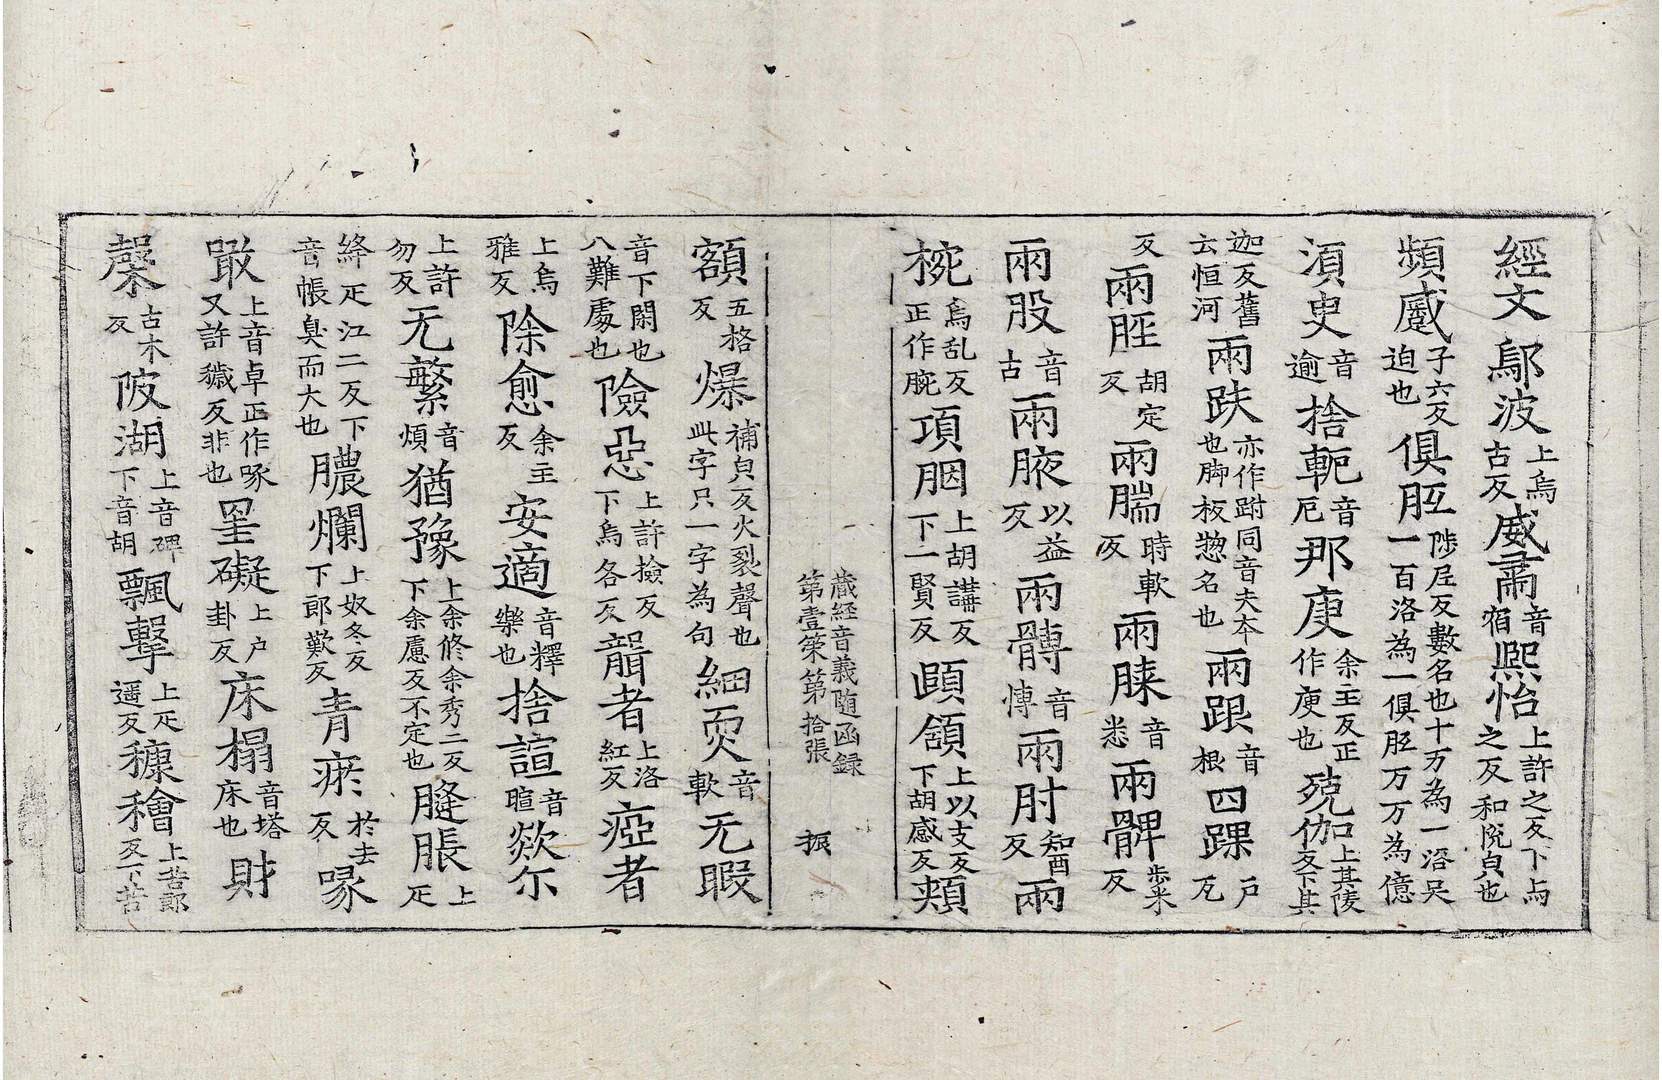 經文 鄔波上烏古反 威肅音宿 熙怡上許之反下与之反和恱皃也
頻慼子六反迫也 俱胝陟𡰱反數名也十万為一洛吴一百洛為一俱胝万万為億
湏史音逾 捨軛音厄 那庾余主反正作庾也 殑伽上其陵反下其
迦反舊云恒河 兩趺亦作跗同音夫夲也脚板惣名也 兩跟音根 四踝户瓦
反 兩脛胡定反 兩腨時軟反 兩膝音悉 兩髀歩米反
兩股音古 兩腋以益反 兩髆音博 兩肘知酉反 兩
椀烏乱反正作腕 項胭上胡講反下一賢反 頤頷上以支反下胡感反 頰
藏経音義随函録
第壹策第拾張 振
額五格反 爆補皃反火裂聲也此字只一字為句 細耎音軟 无暇
音下閑也八難處也 險惡上許撿反下烏各反 聾者上洛紅反 瘂者
上烏雅反 除愈余主反 安適音釋樂也 捨諠音暄 欻尒
上許勿反 无繁音煩 猶豫上余修余秀二反下余慮反不定也 膖脹上疋
絳疋江二反下音帳臭而大也 膿爛上奴冬反下郎歎反 青瘀於去反 喙
噉上音卓正作啄又許穢反非也 罣礙上户卦反 床榻音塔床也 財
㯏古木反 陂湖上音碑下音胡 飄擊上疋遥反 穅穭上苦郎反下苦